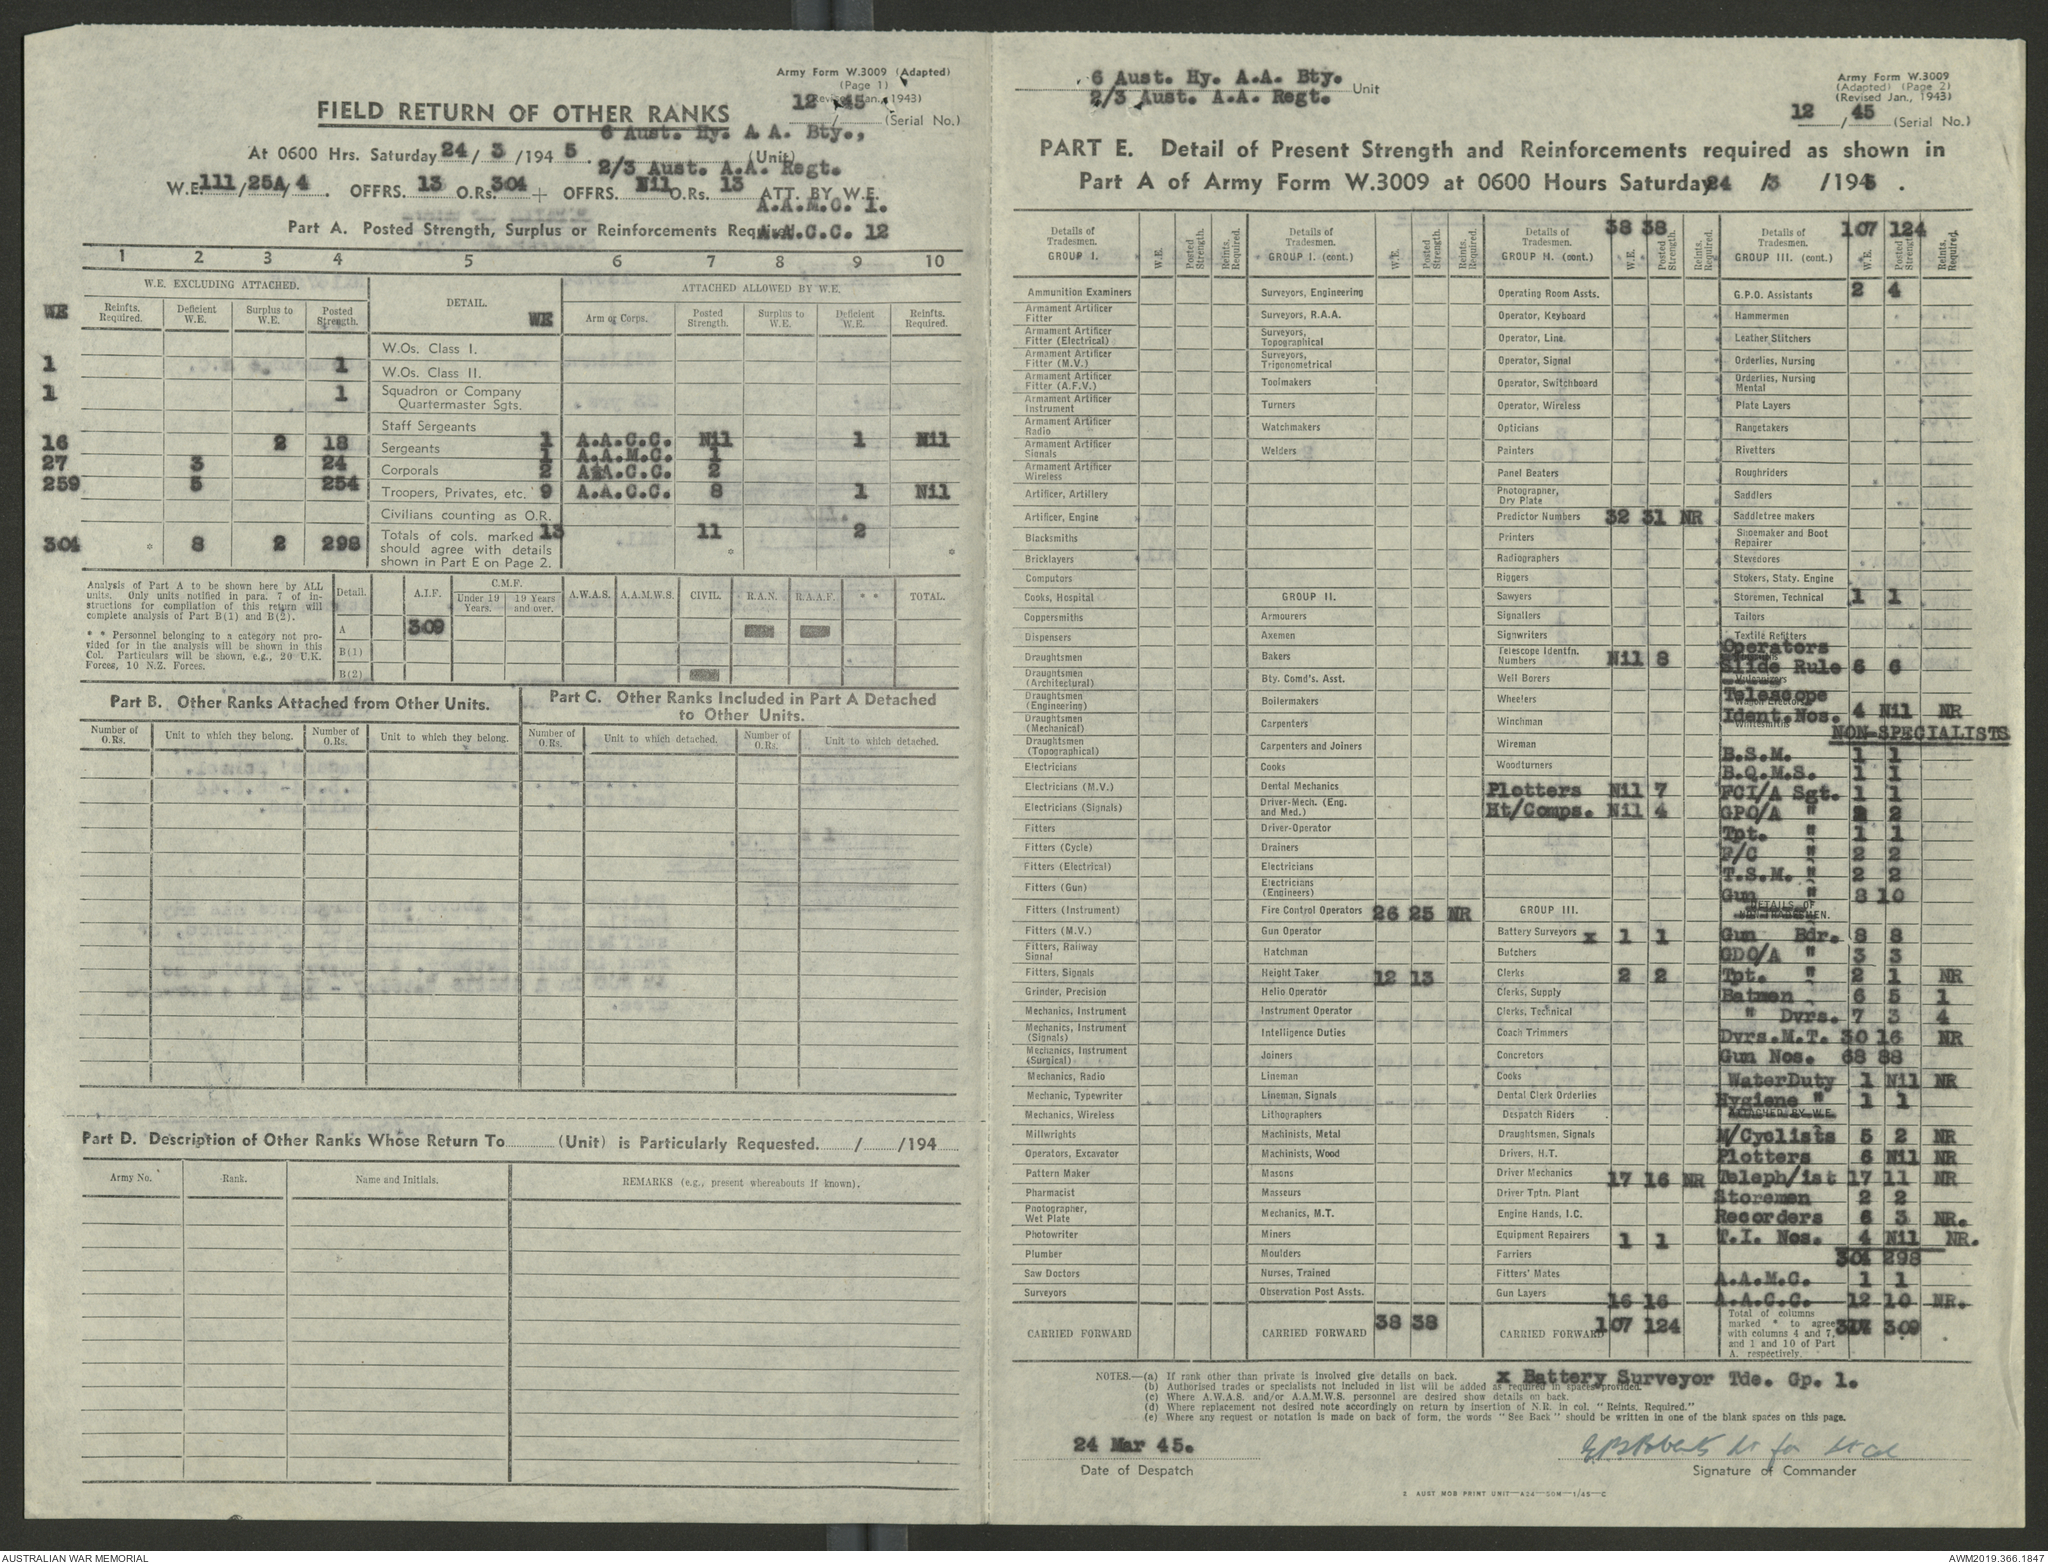 Army Form W.3009 (Adapted)
(Page 1)
(Revised Jan., 1943)
12 / 45 (Serial No.)
FIELD RETURN OF OTHER RANKS
6 Aust. Hy. A A. Bty.,
At 0600 Hrs. Saturday 24 / 3 /194 5. (Unit)
2/3 Aust. A.A. Regt.
W.E. 111/25A/4. OFFRS. 13 O.Rs. 304 + OFFRS. Nil O.Rs. 13 ATT. BY W.E.
A.A.M.C. 1.
Part A. Posted Strength, Surplus or Reinforcements Required
A.A.C.C. 12
1 2 3 4 5 6 7 8 9 10
W.E. EXCLUDING ATTACHED. DETAIL. ATTACHED ALLOWED BY W.E.
WE Reinfts. Required. Deficient W.E. Surplus to W.E. Posted Strength. WE Arm or Corps. Posted Strength. Surplus to W.E. Deficient W.E. Reinfts. Required.
W.Os. Class I.
1 1 W.Os. Class II.
1 1 Squadron or Company Quartermaster Sgts.
Staff Sergeants
16 2 18 Sergeants 1 A.A.C.C. Nil 1 Nil
1 A.A.M.C. 1
27 3 24 Corporals 2 A.A.C.C. 2
259 5 254 Troopers, Privates, etc. 9 A.A.C.C. 8 1 Nil
Civilians counting as O.R.
304 * 8 2 298 Totals of cols. marked * should agree with details shown in Part E on Page 2. 13 11 * 2 *
Analysis of Part A to be shown here by ALL
units. Only units notified in para. 7 of in-
structions for compilation of this return will
complete analysis of Part B(1) and B(2).
* * Personnel belonging to a category not pro-
vided for in the analysis will be shown in this
Col. Particulars will be shown, e.g., 20 U.K.
Forces, 10 N.Z. Forces.
Detail. A.I.F. C.M.F. Under 19 Years. 19 Years and over. A.W.A.S. A.A.M.W.S. CIVIL. R.A.N. R.A.A.F. * * TOTAL.
A 309
B(1)
B(2)
Part B. Other Ranks Attached from Other Units.
Number of O.Rs. Unit to which they belong. Number of O.Rs. Unit to which they belong.
Part C. Other Ranks Included in Part A Detached
to Other Units.
Number of O.Rs. Unit to which detached. Number of O.Rs. Unit to which detached.
Part D. Description of Other Ranks Whose Return To (Unit) is Particularly Requested. / /194
Army No. Rank. Name and Initials. REMARKS (e.g., present whereabouts if known).
6 Aust. Hy. A.A. Bty.
2/3 Aust. A.A. Regt. Unit
Army Form W.3009
(Adapted) (Page 2)
(Revised Jan., 1943)
12 / 45 (Serial No.)
PART E. Detail of Present Strength and Reinforcements required as shown in
Part A of Army Form W.3009 at 0600 Hours Saturday 24 /3 /1945.
Details of Tradesmen. GROUP I. W.E. Posted Strength. Reints. Required.
Ammunition Examiners
Armament Artificer Fitter
Armament Artificer Fitter (Electrical)
Armament Artificer Fitter (M.V.)
Armament Artificer Fitter (A.F.V.)
Armament Artificer Instrument
Armament Artificer Radio
Armament Artificer Signals
Armament Artificer Wireless
Artificer, Artillery
Artificer, Engine
Blacksmiths
Bricklayers
Computors
Cooks, Hospital
Coppersmiths
Dispensers
Draughtsmen
Draughtsmen (Architectural)
Draughtsmen (Engineering)
Draughtsmen (Mechanical)
Draughtsmen (Topographical)
Electricians
Electricians (M.V.)
Electricians (Signals)
Fitters
Fitters (Cycle)
Fitters (Electrical)
Fitters (Gun)
Fitters (Instrument)
Fitters (M.V.)
Fitters, Railway Signal
Fitters, Signals
Grinder, Precision
Mechanics, Instrument
Mechanics, Instrument (Signals)
Mechanics, Instrument (Surgical)
Mechanics, Radio
Mechanic, Typewriter
Mechanics, Wireless
Millwrights
Operators, Excavator
Pattern Maker
Pharmacist
Photographer, Wet Plate
Photowriter
Plumber
Saw Doctors
Surveyors
CARRIED FORWARD
Details of Tradesmen. GROUP I. (cont.) W.E. Posted Strength. Reints. Required.
Surveyors, Engineering
Surveyors, R.A.A.
Surveyors, Topographical
Surveyors, Trigonometrical
Toolmakers
Turners
Watchmakers
Welders
GROUP II.
Armourers
Axemen
Bakers
Bty. Comd's. Asst.
Boilermakers
Carpenters
Carpenters and Joiners
Cooks
Dental Mechanics
Driver-Mech. (Eng. and Med.)
Driver-Operator
Drainers
Electricians
Electricians (Engineers)
Fire Control Operators 26 25 NR
Gun Operator
Hatchman
Height Taker 12 13
Helio Operator
Instrument Operator
Intelligence Duties
Joiners
Lineman
Lineman, Signals
Lithographers
Machinists, Metal
Machinists, Wood
Masons
Masseurs
Mechanics, M.T.
Miners
Moulders
Nurses, Trained
Observation Post Assts.
CARRIED FORWARD 38 38
Details of Tradesmen. GROUP II. (cont.) 38 38 W.E. Posted Strength. Reints. Required.
Operating Room Assts.
Operator, Keyboard
Operator, Line
Operator, Signal
Operator, Switchboard
Operator, Wireless
Opticians
Painters
Panel Beaters
Photographer, Dry Plate
Predictor Numbers 32 31 NR
Printers
Radiographers
Riggers
Sawyers
Signallers
Signwriters
Telescope Identfn. Numbers Nil 8
Well Borers
Wheelers
Winchman
Wireman
Woodturners
Plotters Nil 7
Ht/Comps. Nil 4
GROUP III.
Battery Surveyors x 1 1
Butchers
Clerks 2 2
Clerks, Supply
Clerks, Technical
Coach Trimmers
Concretors
Cooks
Dental Clerk Orderlies
Despatch Riders
Draughtsmen, Signals
Drivers, H.T.
Driver Mechanics 17 16 NR
Driver Tptn. Plant
Engine Hands, I.C.
Equipment Repairers 1 1
Farriers
Fitters' Mates
Gun Layers 16 16
CARRIED FORWARD 107 124
Details of Tradesmen. GROUP III. (cont.) 107 124 W.E. Posted Strength Reints. Required.
G.P.O. Assistants 2 4
Hammermen
Leather Stitchers
Orderlies, Nursing
Orderlies, Nursing Mental
Plate Layers
Rangetakers
Rivetters
Roughriders
Saddlers
Saddletree makers
Shoemaker and Boot Repairer
Stevedores
Stokers, Staty. Engine
Storemen, Technical 1 1
Tailors
Textile Refitters
Operators
Slide Rule 6 6
Telescope
Ident.Nos. 4 Nil NR
NON-SPECIALISTS
B.S.M. 1 1
B.Q.M.S. 1 1
FCI/A Sgt. 1 1
GPO/A " 2 2
Tpt. " 1 1
F/C " 2 2
T.S.M. " 2 2
Gun " 8 10
DETAILS OF NON-TRADESMEN.
Gun Bdr. 8 8
GDO/A " 3 3
Tpt. " 2 1 NR
Batmen 6 5 1
" Dvrs. 7 3 4
Dvrs.M.T. 30 16 NR
Gun Nos. 68 88
WaterDuty 1 Nil NR
Hygiene " 1 1
ATTACHED BY W.E.
M/Cyclists 5 2 NR
Plotters 6 Nil NR
Teleph/ist 17 11 NR
Storemen 2 2
Recorders 6 3 NR.
T.I. Nos. 4 Nil NR.
304 298
A.A.M.C. 1 1
A.A.C.C. 12 10 NR.
Total of columns marked * to agree with columns 4 and 7, and 1 and 10 of Part A. respectively. 317 309
NOTES.—(a) If rank other than private is involved give details on back. x Battery Surveyor Tde. Gp. 1.
(b) Authorised trades or specialists not included in list will be added as required in spaces provided.
(c) Where A.W.A.S. and/or A.A.M.W.S. personnel are desired show details on back.
(d) Where replacement not desired note accordingly on return by insertion of N.R. in col. "Reints. Required."
(e) Where any request or notation is made on back of form, the words "See Back" should be written in one of the blank spaces on this page.
24 Mar 45.
Date of Despatch
Roberts Lt for Lt Col
Signature of Commander
2 AUST MOB PRINT UNIT—A24—50M—1/45—C
AUSTRALIAN WAR MEMORIAL
AWM2019.366.1847